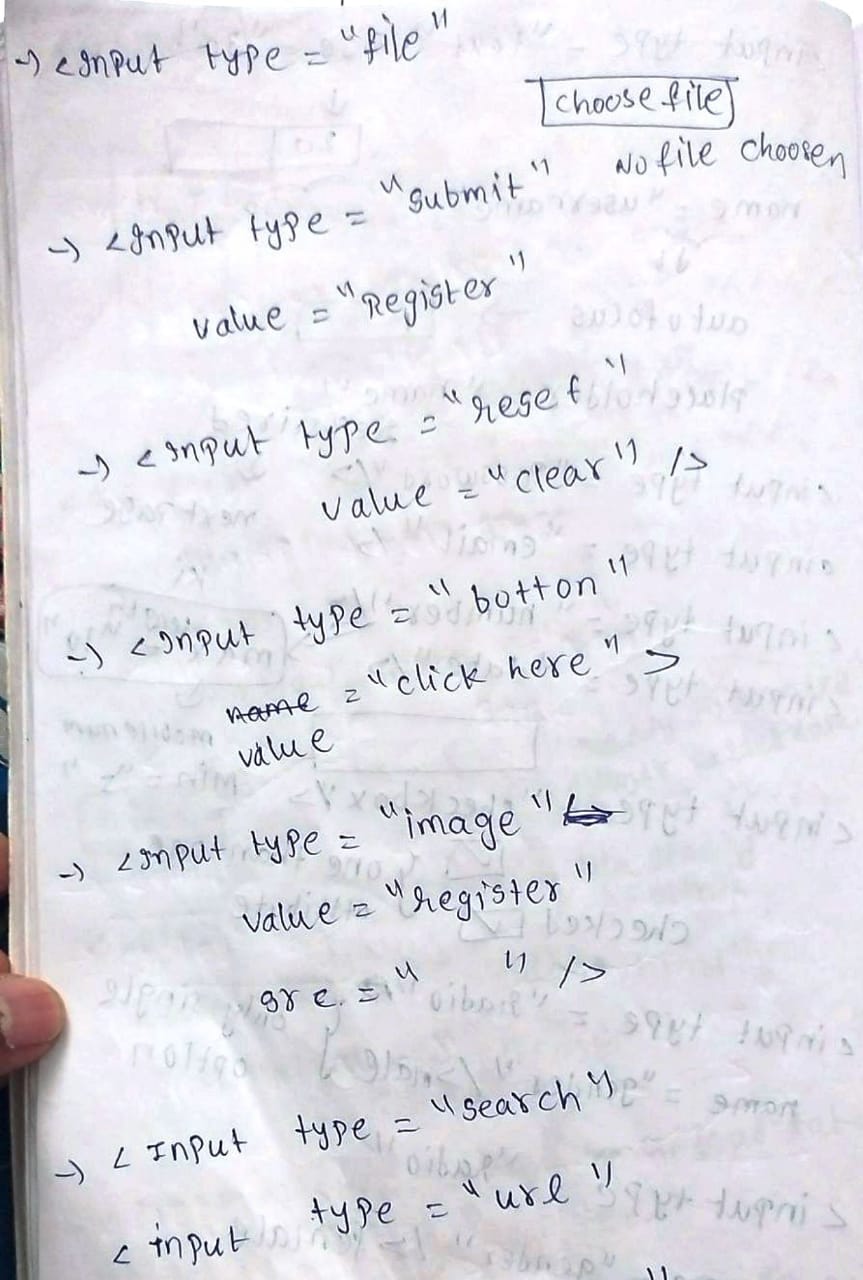 → <Input type = "file"
choose file
No file choosen
→ <Input type = "submit"
value = "Register"
→ <Input type = "reset"
value = "clear" />
→ <Input type = "botton"
name = "click here" >
value
→ <Input type = "image"
value = "register"
sre = " " />
→ <Input type = "search"
<input type = "url"